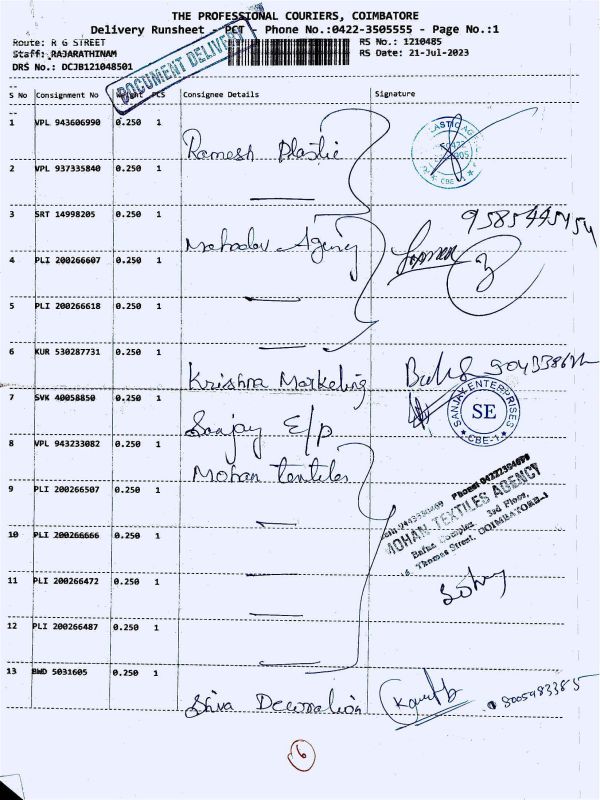 THE PROFESSIONAL COURIERS, COIMBATORE
Delivery Runsheet - PCT - Phone No.:0422-3505555 - Page No.:1
Route: R G STREET RS No.: 1210485
Staff: RAJARATHINAM RS Date: 21-Jul-2023
DRS No.: DCJB121048501
DOCUMENT DELIVERY
S No Consignment No PCS Consignee Details Signature
1 VPL 943606990 0.250 1
Ramesh Plastic
2 VPL 937335840 0.250 1
3 SRT 14998205 0.250 1
9585445454
Mahadev Agency
4 PLI 200266607 0.250 1
5 PLI 200266618 0.250 1
6 KUR 530287731 0.250 1
Krishna Marketing
7 SVK 40058850 0.250 1
SANJAY ENTERPRISES
SE
CBE-1
Sanjay E/P
8 VPL 943233082 0.250 1
Mohan textiles
9 PLI 200266507 0.250 1
MOHAN TEXTILES AGENCY
3rd Floor,
Thomas Street, COIMBATORE-1
10 PLI 200266666 0.250 1
11 PLI 200266472 0.250 1
12 PLI 200266487 0.250 1
13 BWD 5031605 0.250 1
Shiva Decoration
6